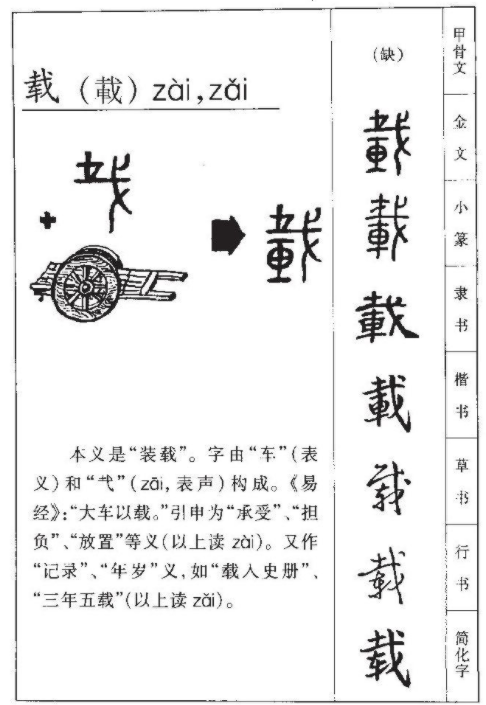 载（載）zài, zǎi
本义是“装载”。字由“车”（表
义）和“弋”（zāi，表声）构成。《易
经》：“大车以载。”引申为“承受”、“担
负”、“放置”等义（以上读 zài）。又作
“记录”、“年岁”义，如“载入史册”、
“三年五载”（以上读 zǎi）。
（缺）
載
載
載
載
载
载
载
甲骨文
金文
小篆
隶书
楷书
草书
行书
简化字